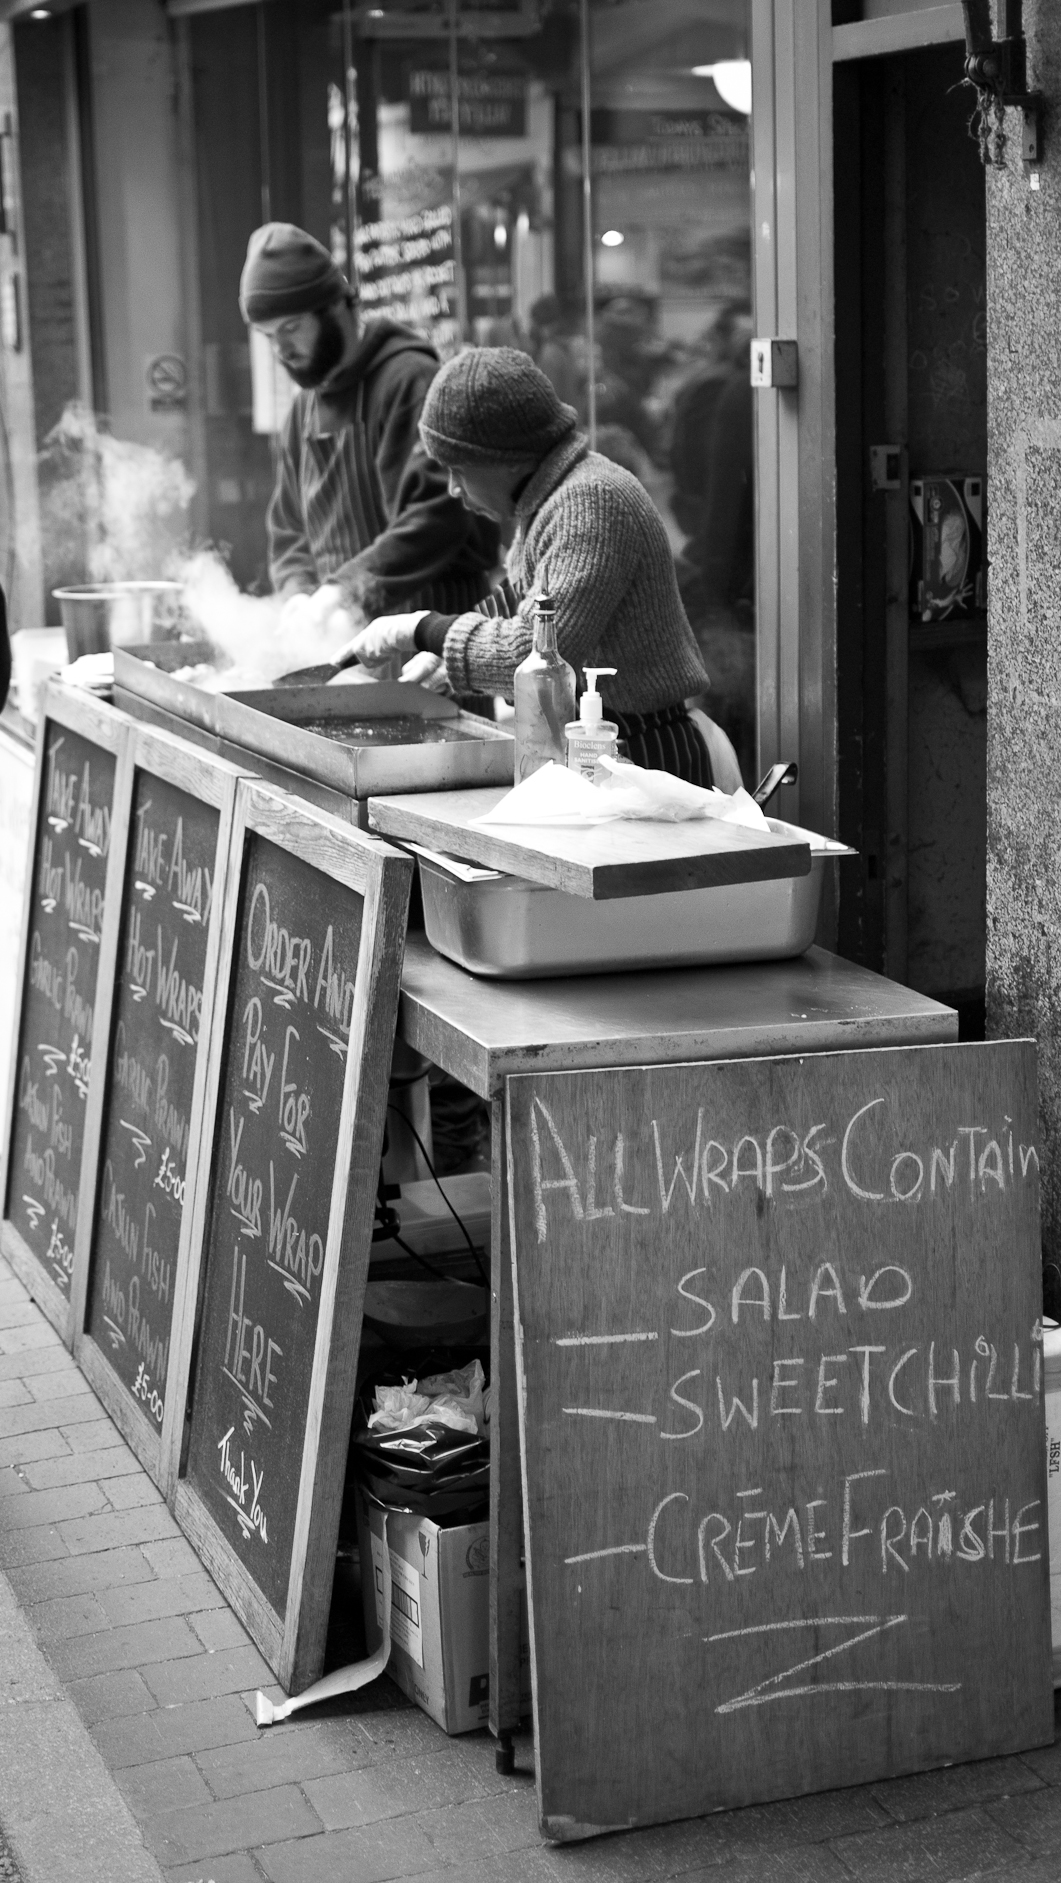 TAKE AWAY
HOT WRAPS
GARLIC PRAWN
£5.00
CAJUN FISH
AND PRAWN
£5.00
TAKE-AWAY
HOT WRAPS
GARLIC PRAWN
£5.00
CAJUN FISH
AND PRAWN
£5-00
ORDER AND
PAY FOR
YOUR WRAP
HERE
Thank You
Bioclens
HAND
ALL WRAPS CONTAIN
- SALAD
- SWEET CHILLI
- CRĒME FRAÎSHE
"LFSH"